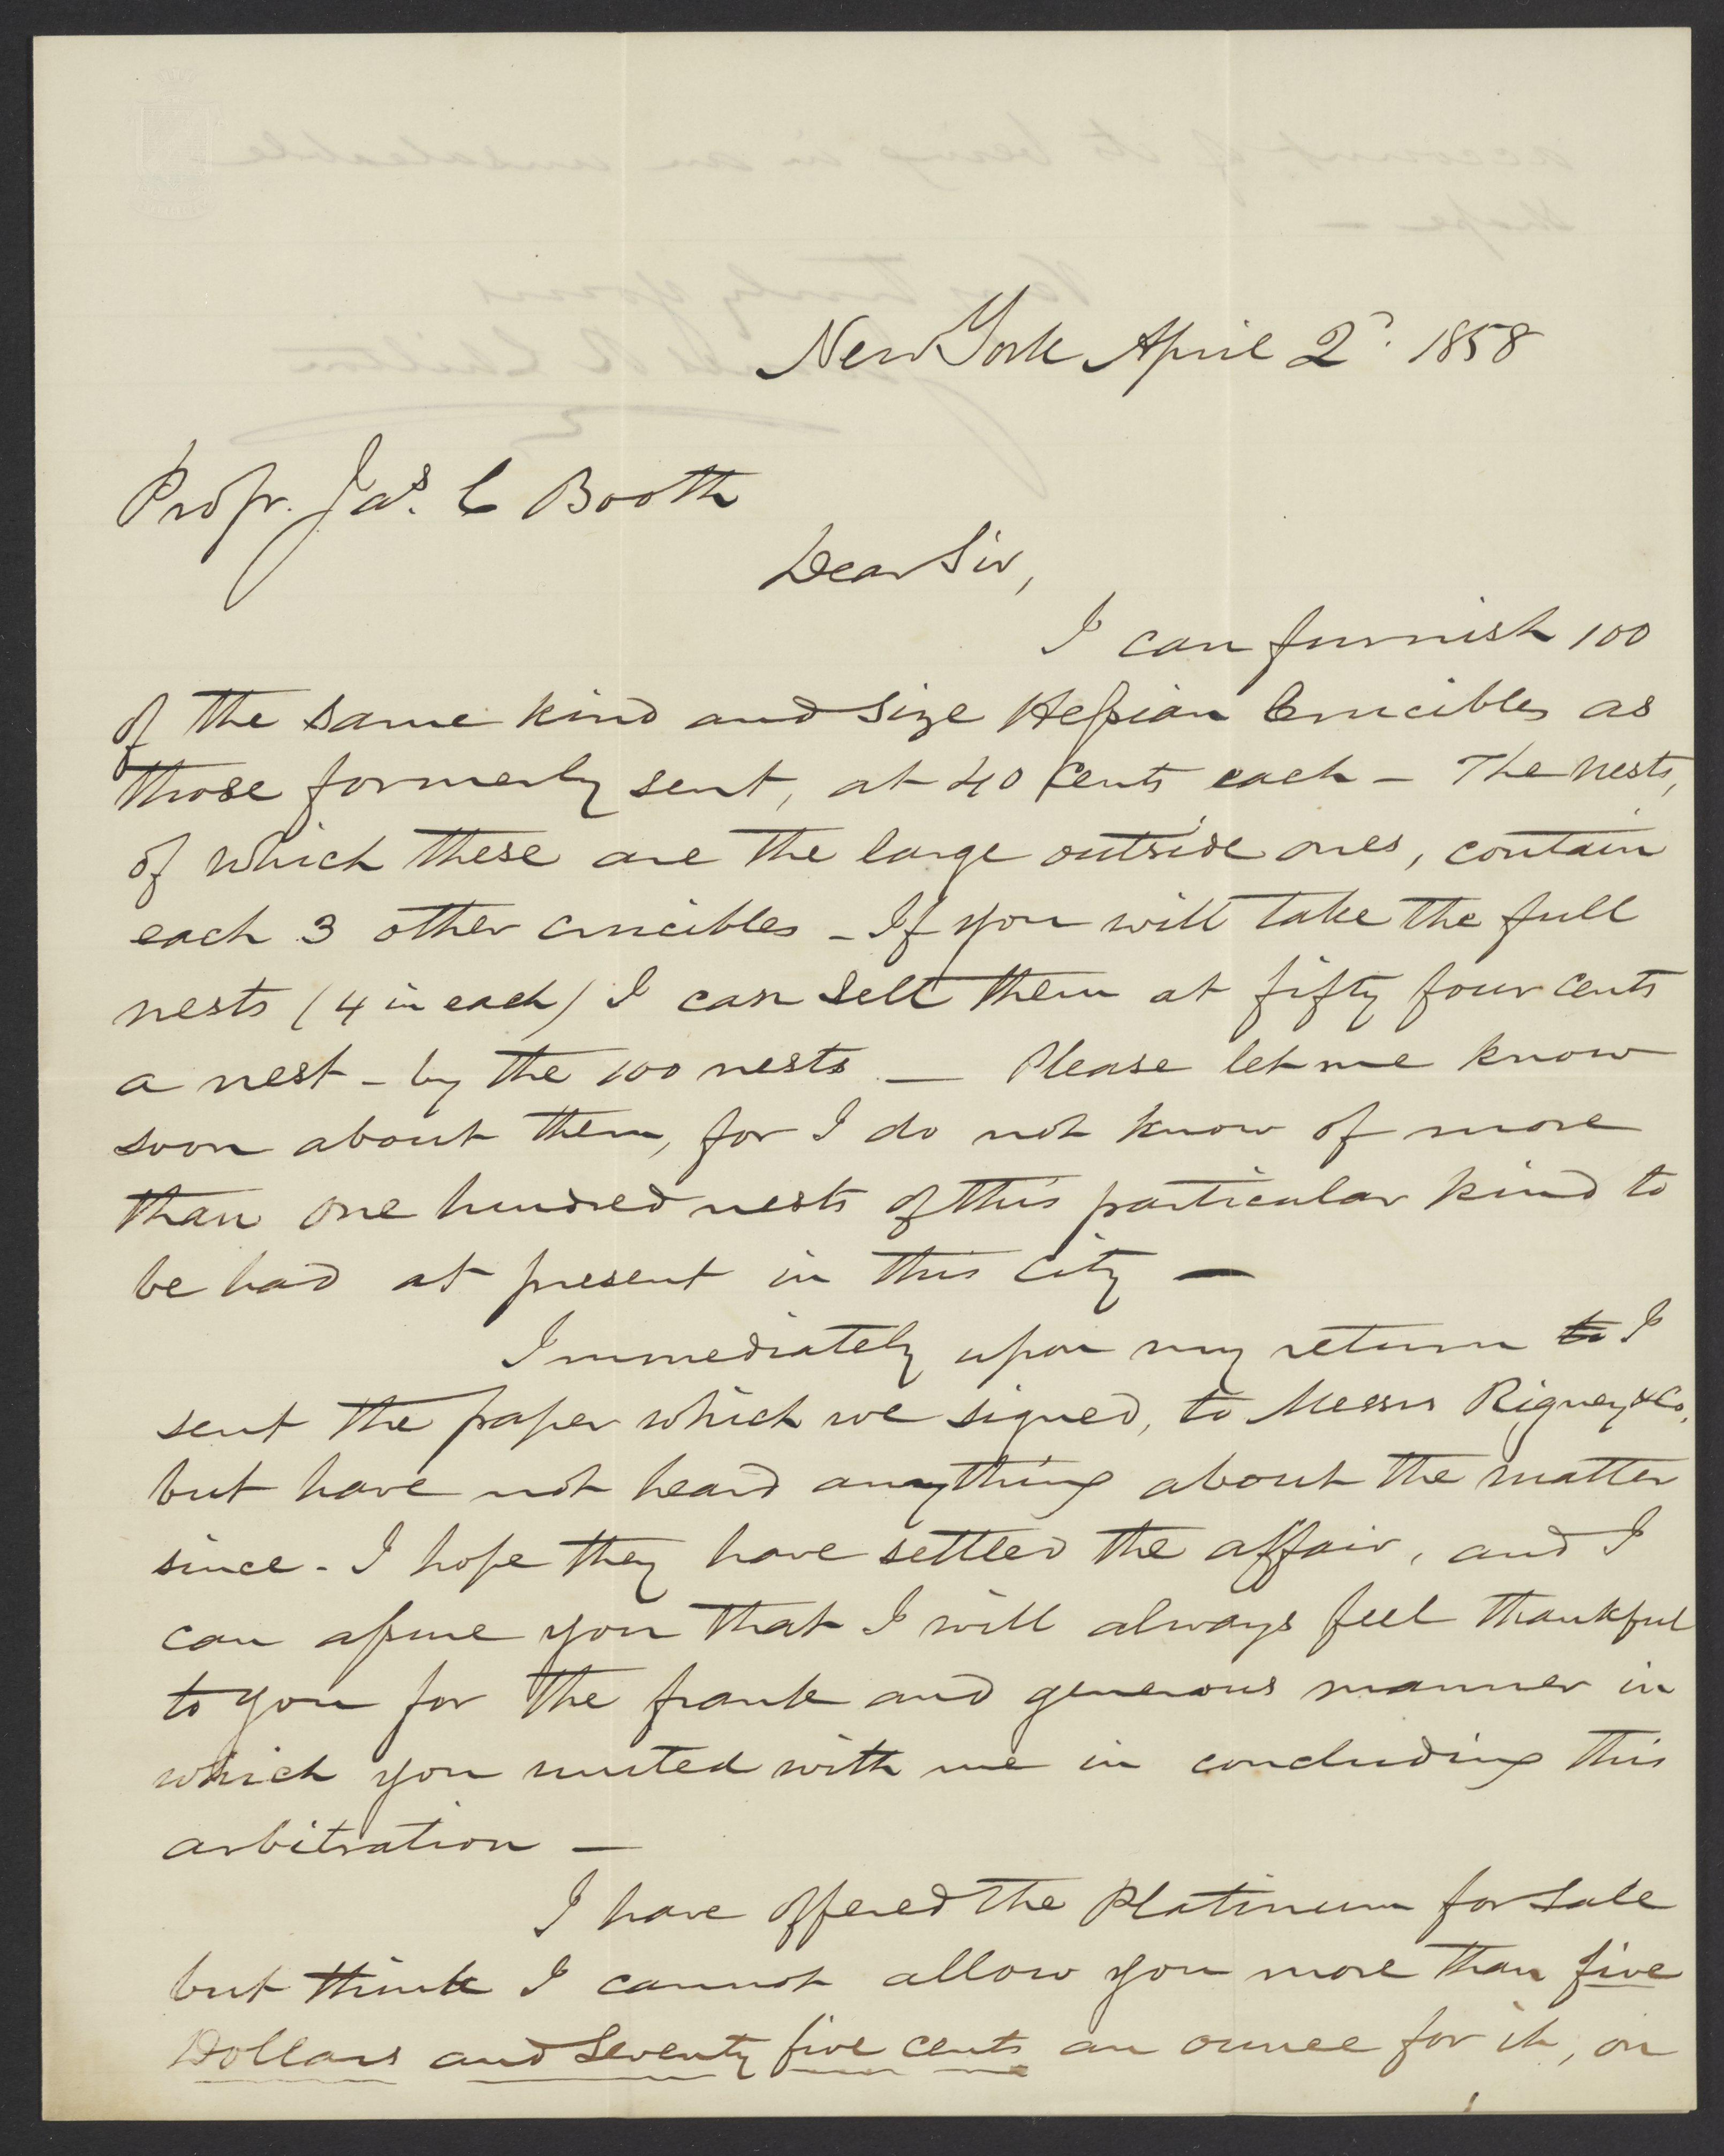 New York April 2d. 1858
Profr. Jas. C Booth
Dear Sir,
I can furnish 100
of the same kind and size Hessian Crucibles as
those formerly sent, at 40 Cents each – The nests,
of which these are the large outside ones, contain
each 3 other crucibles – If you will take the full
nests (4 in each) I can sell them at fifty four cents
a nest – by the 100 nests – Please let me know
soon about them, for I do not know of more
than one hundred nests of this particular kind to
be had at present in this City –
Immediately upon my return to I
sent the paper which we signed, to Messrs Rigney & Co,
but have not heard anything about the matter
since – I hope they have settled the affair, and I
can assure you that I will always feel thankful
to you for the frank and generous manner in
which you united with me in concluding this
arbitration –
I have offered the Platinum for sale
but think I cannot allow you more than five
Dollars and Seventy five cents an ounce for it, on
account of its being in an unsaleable
shape –
Very truly yours
James R Chilton